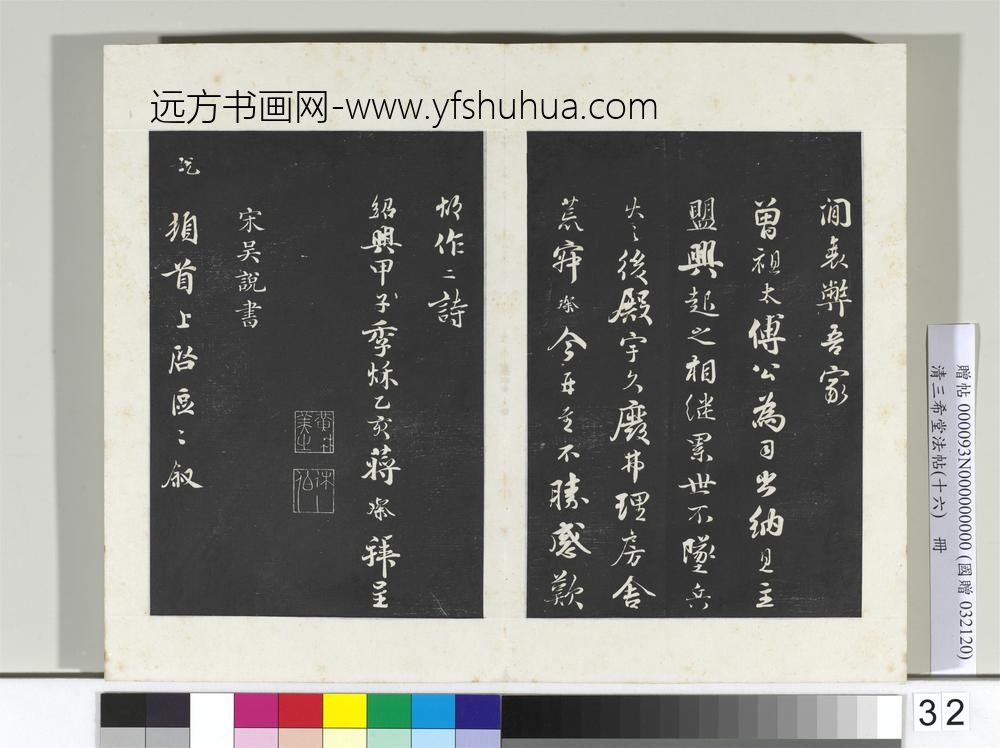 远方书画网-www.yfshuhua.com
澗哀弊吾家
曾祖太傅公為司出納見主
盟興起之相继累世不墜兵
火之後殿宇久廢弗理房舍
荒寂璨今再至不勝感歎
作二詩
紹興甲子季秌乙亥蔣璨拜呈
宋吳說書
說
頓首上啓區二叙
贈帖 000093N000000000 (國贈 032120)
清三希堂法帖(十六) 冊
32